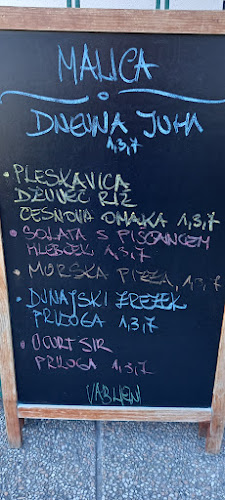 MALICA
DNEVNA JUHA
1,3,7
• PLESKAVICA
DŽUVEČ RIŽ
ČESNOVA OMAKA 1,3,7
• SOLATA S PIŠČANCEM
HLEBČEK 1,3,7
• MORSKA PIZZA, 1,3,7
• DUNAJSKI ZREZEK
PRILOGA 1,3,7
• OCVRT SIR
PRILOGA 1,3,7
VABLJENI